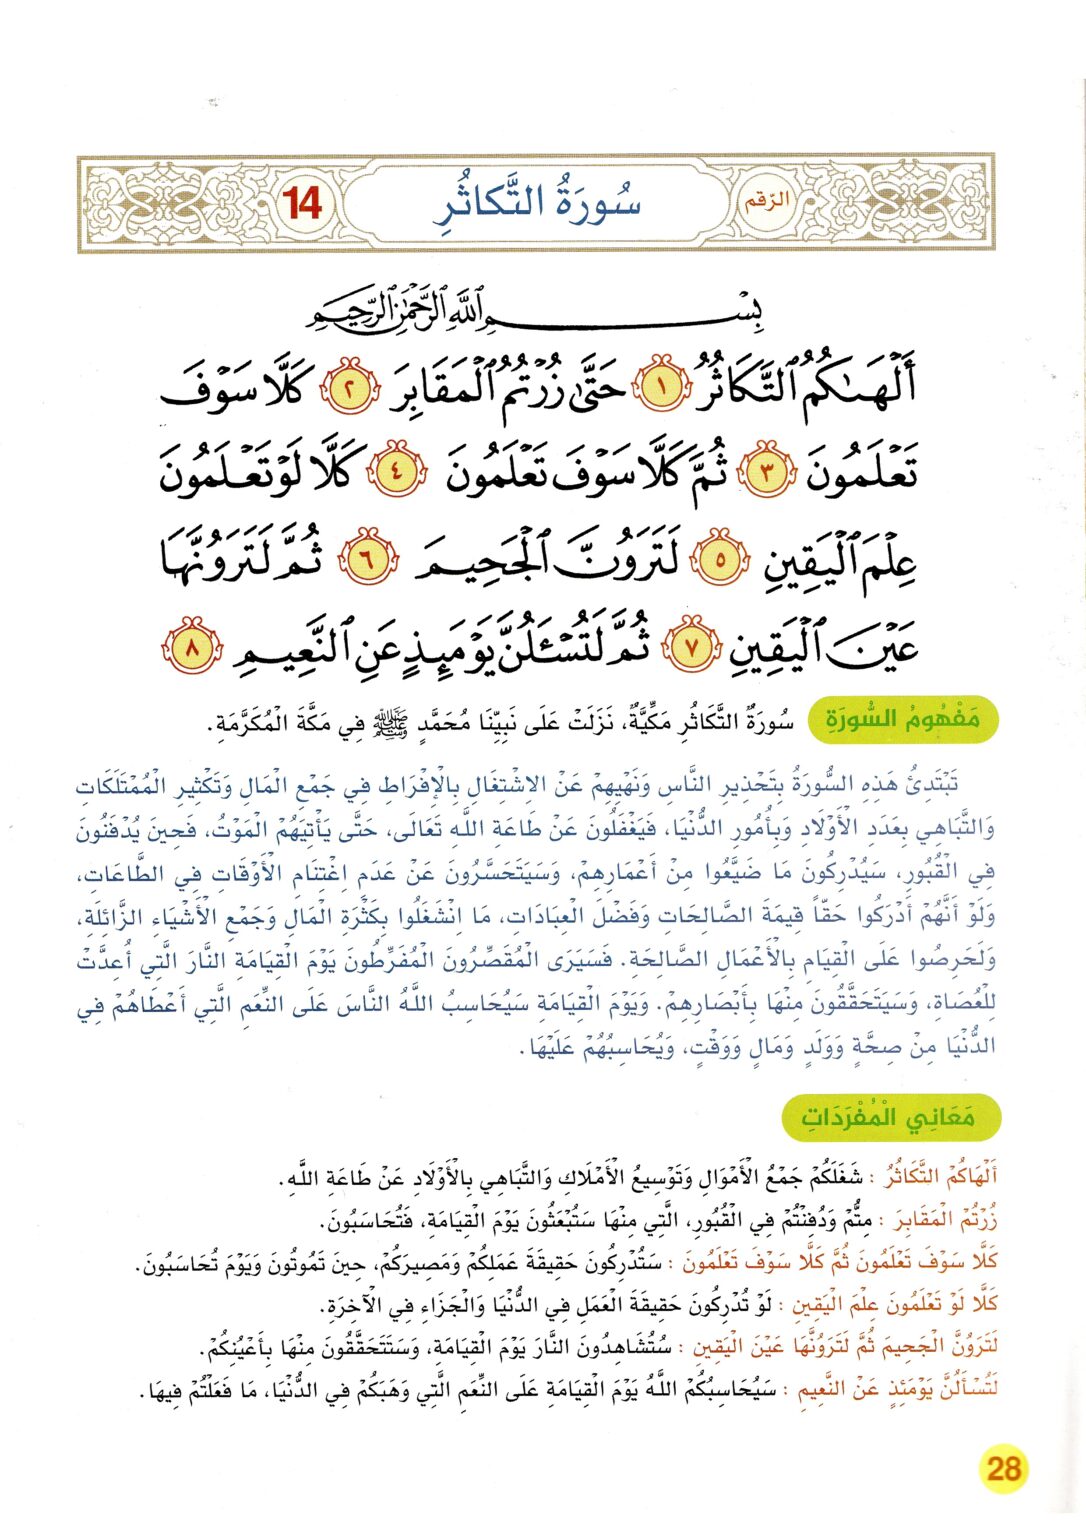 الرّقم
سُورَةُ التَّكاثُرِ
14
بِسْمِ اللَّهِ الرَّحْمَٰنِ الرَّحِيمِ
أَلْهَىٰكُمُ ٱلتَّكَاثُرُ ١ حَتَّىٰ زُرْتُمُ ٱلْمَقَابِرَ ٢ كَلَّا سَوْفَ
تَعْلَمُونَ ٣ ثُمَّ كَلَّا سَوْفَ تَعْلَمُونَ ٤ كَلَّا لَوْ تَعْلَمُونَ
عِلْمَ ٱلْيَقِينِ ٥ لَتَرَوُنَّ ٱلْجَحِيمَ ٦ ثُمَّ لَتَرَوُنَّهَا
عَيْنَ ٱلْيَقِينِ ٧ ثُمَّ لَتُسْـَٔلُنَّ يَوْمَئِذٍ عَنِ ٱلنَّعِيمِ ٨
مَفْهُومُ السُّورَةِ سُورَةُ التَّكَاثُرِ مَكِّيَّةٌ، نَزَلَتْ عَلَى نَبِيِّنَا مُحَمَّدٍ ﷺ فِي مَكَّةَ الْمُكَرَّمَةِ.
تَبْتَدِئُ هَذِهِ السُّورَةُ بِتَحْذِيرِ النَّاسِ وَنَهْيِهِمْ عَنْ الِاشْتِغَالِ بِالْإِفْرَاطِ فِي جَمْعِ الْمَالِ وَتَكْثِيرِ الْمُمْتَلَكَاتِ
وَالتَّبَاهِي بِعَدَدِ الْأَوْلَادِ وَبِأُمُورِ الدُّنْيَا، فَيَغْفَلُونَ عَنْ طَاعَةِ اللَّهِ تَعَالَى، حَتَّى يَأْتِيَهُمْ الْمَوْتُ، فَحِينَ يُدْفَنُونَ
فِي الْقُبُورِ، سَيُدْرِكُونَ مَا ضَيَّعُوا مِنْ أَعْمَارِهِمْ، وَسَيَتَحَسَّرُونَ عَنْ عَدَمِ اغْتِنَامِ الْأَوْقَاتِ فِي الطَّاعَاتِ،
وَلَوْ أَنَّهُمْ أَدْرَكُوا حَقًّا قِيمَةَ الصَّالِحَاتِ وَفَضْلَ الْعِبَادَاتِ، مَا انْشَغَلُوا بِكَثْرَةِ الْمَالِ وَجَمْعِ الْأَشْيَاءِ الزَّائِلَةِ،
وَلَحَرِصُوا عَلَى الْقِيَامِ بِالْأَعْمَالِ الصَّالِحَةِ. فَسَيَرَى الْمُقَصِّرُونَ الْمُفَرِّطُونَ يَوْمَ الْقِيَامَةِ النَّارَ الَّتِي أُعِدَّتْ
لِلْعُصَاةِ، وَسَيَتَحَقَّقُونَ مِنْهَا بِأَبْصَارِهِمْ. وَيَوْمَ الْقِيَامَةِ سَيُحَاسِبُ اللَّهُ النَّاسَ عَلَى النِّعَمِ الَّتِي أَعْطَاهُمْ فِي
الدُّنْيَا مِنْ صِحَّةٍ وَوَلَدٍ وَمَالٍ وَوَقْتٍ، وَيُحَاسِبُهُمْ عَلَيْهَا.
مَعَانِي الْمُفْرَدَاتِ
أَلْهَاكُمْ التَّكَاثُرُ : شَغَلَكُمْ جَمْعُ الْأَمْوَالِ وَتَوْسِيعُ الْأَمْلَاكِ وَالتَّبَاهِي بِالْأَوْلَادِ عَنْ طَاعَةِ اللَّهِ.
زُرْتُمْ الْمَقَابِرَ : مِتُّمْ وَدُفِنْتُمْ فِي الْقُبُورِ، الَّتِي مِنْهَا سَتُبْعَثُونَ يَوْمَ الْقِيَامَةِ، فَتُحَاسَبُونَ.
كَلَّا سَوْفَ تَعْلَمُونَ ثُمَّ كَلَّا سَوْفَ تَعْلَمُونَ : سَتُدْرِكُونَ حَقِيقَةَ عَمَلِكُمْ وَمَصِيرَكُمْ، حِينَ تَمُوتُونَ وَيَوْمَ تُحَاسَبُونَ.
كَلَّا لَوْ تَعْلَمُونَ عِلْمَ الْيَقِينِ : لَوْ تُدْرِكُونَ حَقِيقَةَ الْعَمَلِ فِي الدُّنْيَا وَالْجَزَاءِ فِي الْآخِرَةِ.
لَتَرَوُنَّ الْجَحِيمَ ثُمَّ لَتَرَوُنَّهَا عَيْنَ الْيَقِينِ : سَتُشَاهِدُونَ النَّارَ يَوْمَ الْقِيَامَةِ، وَسَتَتَحَقَّقُونَ مِنْهَا بِأَعْيُنِكُمْ.
لَتُسْأَلُنَّ يَوْمَئِذٍ عَنْ النَّعِيمِ : سَيُحَاسِبُكُمْ اللَّهُ يَوْمَ الْقِيَامَةِ عَلَى النِّعَمِ الَّتِي وَهَبَكُمْ فِي الدُّنْيَا، مَا فَعَلْتُمْ فِيهَا.
28